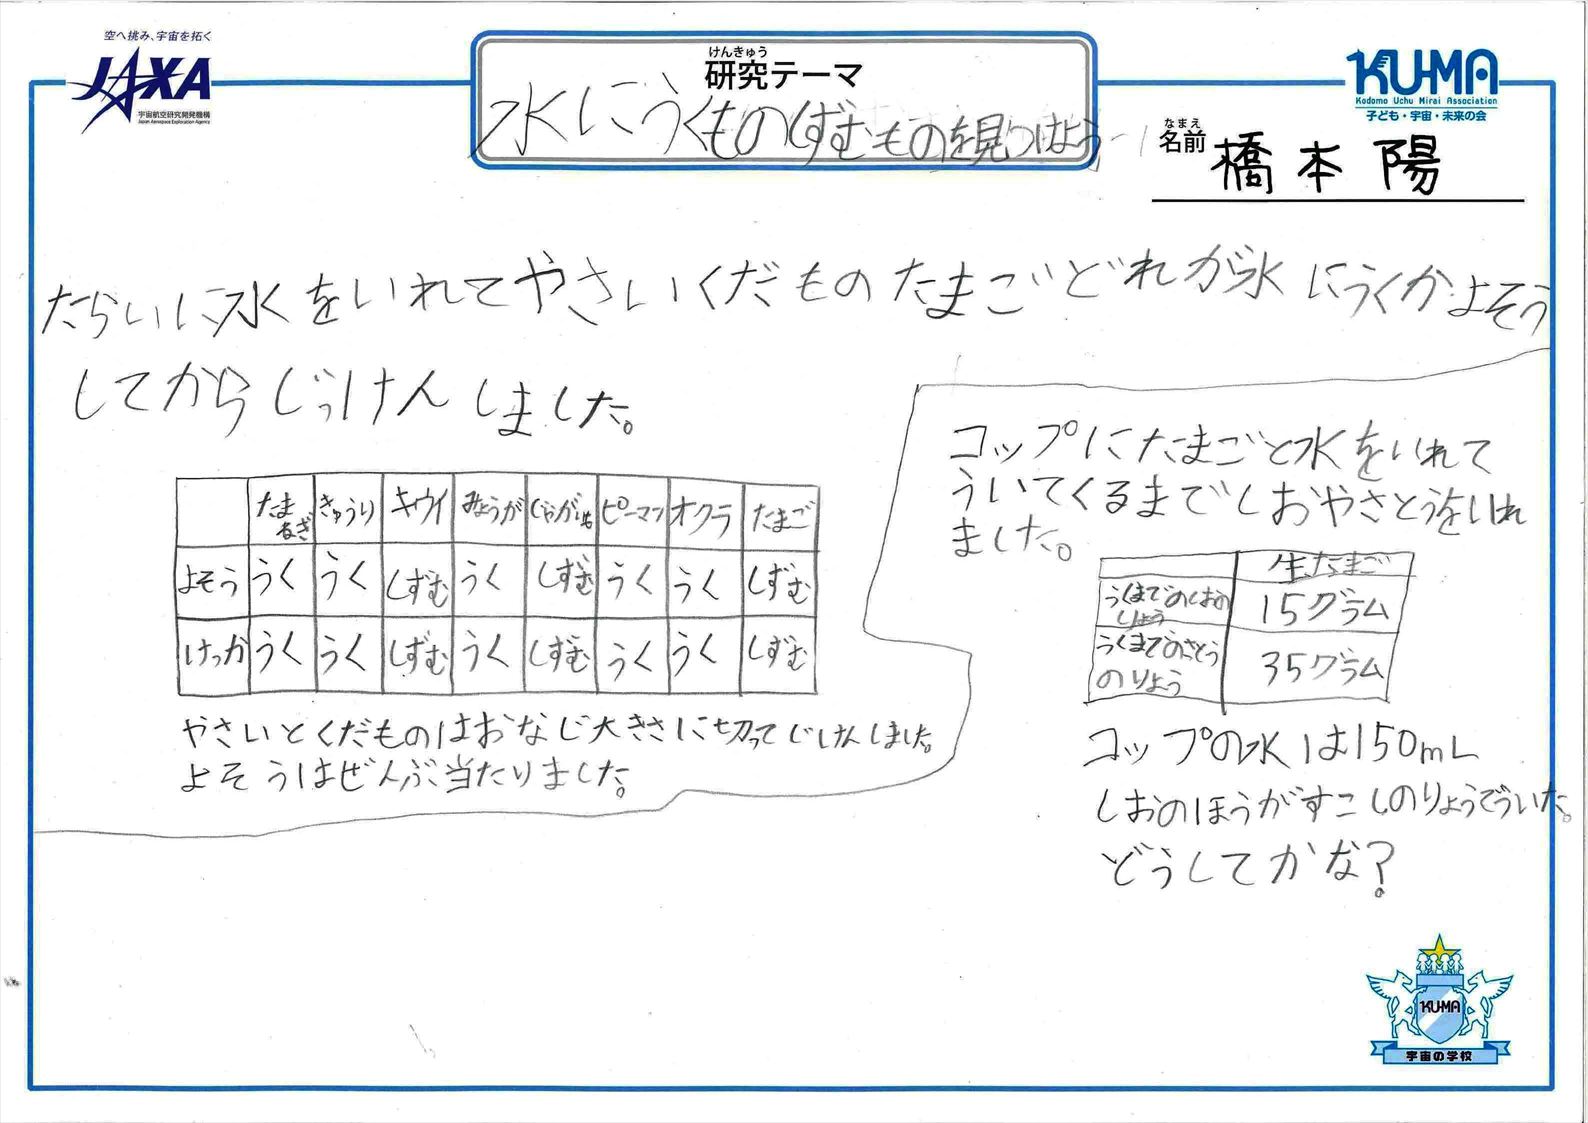 空へ挑み、宇宙を拓く
JAXA
宇宙航空研究開発機構
Japan Aerospace Exploration Agency
けんきゅう
研究テーマ
水にうくものしずむものを見つけよう
KU-MA
Kodomo Uchu Mirai Association
子ども・宇宙・未来の会
なまえ
名前 橋本 陽
たらいに水をいれてやさいくだものたまごどれが水にうくかよそう
してからじっけんしました。
たまねぎ きゅうり キウイ みょうが じゃがいも ピーマン オクラ たまご
よそう うく うく しずむ うく しずむ うく うく しずむ
けっか うく うく しずむ うく しずむ うく うく しずむ
やさいとくだものはおなじ大きさに切ってじけんしました。
よそうはぜんぶ当たりました。
コップにたまごと水をいれて
ういてくるまでしおやさとうをいれ
ました。
生たまご
うくまでのしおの
りょう 15グラム
うくまでのさとう
のりょう 35グラム
コップの水は150mL
しおのほうがすこしのりょうでういた。
どうしてかな?
KU-MA
宇宙の学校